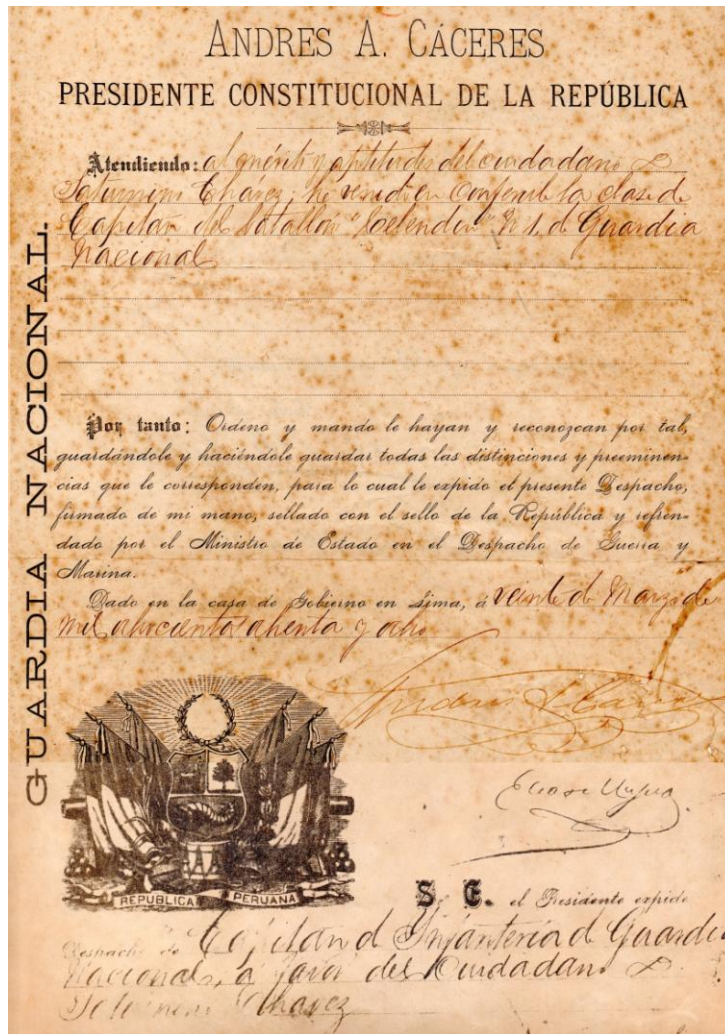 ANDRES A. CÁCERES
PRESIDENTE CONSTITUCIONAL DE LA REPÚBLICA
Atendiendo: al mérito y aptitudes del ciudadano D
Saturnino Chavez, he venido en Conferirle la clase de
Capitán del Batallón "Celendin" N 1, de Guardia
Nacional
Por tanto: Ordeno y mando le hayan y reconozcan por tal,
guardándole y haciéndole guardar todas las distinciones y preeminen-
cias que le corresponden, para lo cual le expido el presente Despacho,
firmado de mi mano, sellado con el sello de la República y refren-
dado por el Ministro de Estado en el Despacho de Guerra y
Marina.
Dado en la casa de Gobierno en Lima, á veinte de Marzo de
mil ochocientos ochenta y ocho
GUARDIA NACIONAL.
REPUBLICA PERUANA
S. E. el Presidente expide
Despacho de Capitan d Infanteria d Guardia
Nacional, a favor del Ciudadano D
Saturnino Chavez